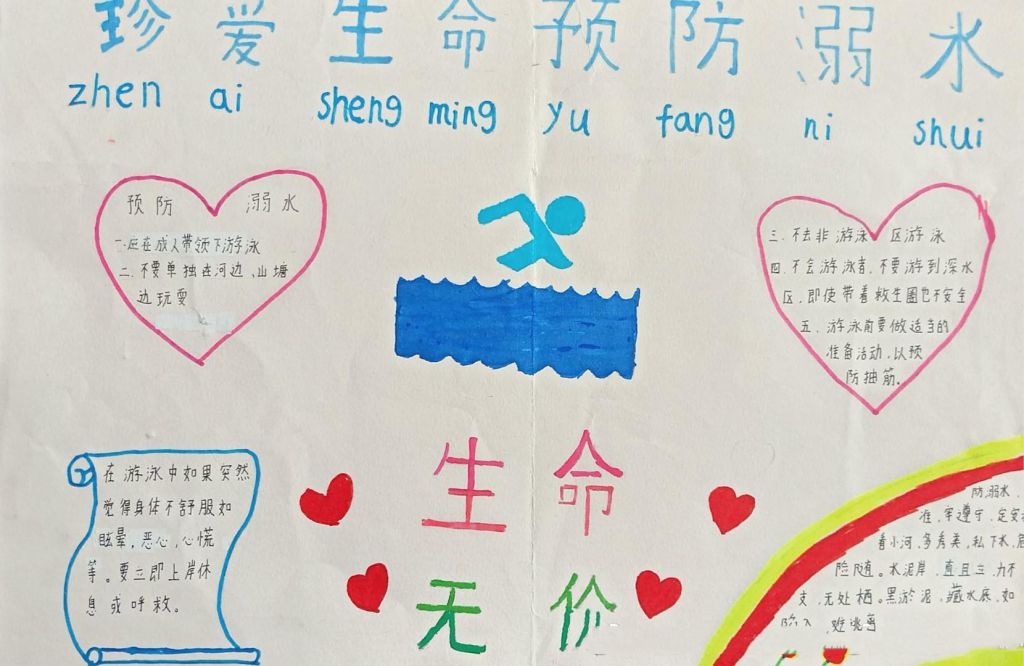 珍爱生命预防溺水
zhen ai sheng ming yu fang ni shui
预防 溺水
一.应在成人带领下游泳
二.不要单独在河边、山塘
边玩耍
三.不去非游泳区游泳
四.不会游泳者,不要游到深水
区,即使带着救生圈也不安全
五、游泳前要做适当的
准备活动,以预
防抽筋。
生命
无价
在游泳中如果突然
觉得身体不舒服如
眩晕,恶心,心慌
等。要立即上岸休
息或呼救。
防溺水,
准,牢遵守,定安
看小河,多秀美,私下水,危
险随。水泥岸,直且立,力不
支,无处栖。黑淤泥,藏水底,如
陷入,难逃离